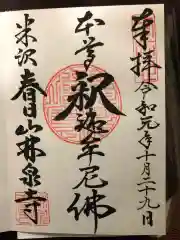 奉拝 令和元年十月二十九日
本尊 釈迦牟尼佛
米沢 春日山林泉寺